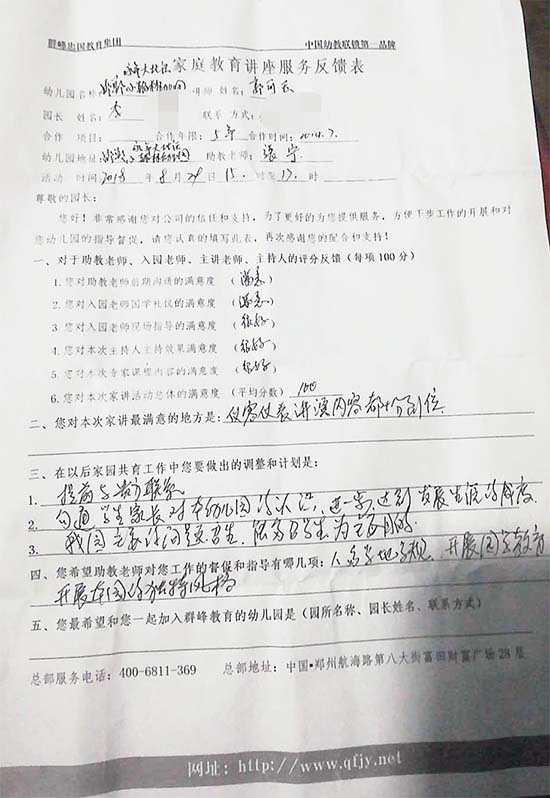 群峰忠国教育集团 中国幼教联锁第一品牌
家庭教育讲座服务反馈表
幼儿园名称 讲师 姓名:
园长 姓名: 李 联系 方式:
合作 项目: 合作年限: 5年 合作时间:
幼儿园地址 助教老师: 张宁
活动 时间 2018 年 8 月 29 日 15 时至 17 时
尊敬的园长:
您好! 非常感谢您对公司的信任和支持, 为了更好的为您提供服务, 方便下步工作的开展和对
您幼儿园的指导督促, 请您认真的填写此表, 再次感谢您的配合和支持!
一、对于助教老师、入园老师、主讲老师、主持人的评分反馈 (每项 100 分)
1. 您对助教老师前期沟通的满意度 (满意)
2. 您对入园老师国学礼仪的满意度 (满意)
3. 您对入园老师现场指导的满意度 (很好)
4. 您对本次主持人主持效果满意度 (很好)
5. 您对本次专家课程内容的满意度 (很好)
6. 您对本次家讲活动总体的满意度 (平均分数) 100
二、您对本次家讲最满意的地方是: 仪容仪表 讲演内容都十分到位
三、在以后家园共育工作中您要做出的调整和计划是:
1. 提前与 联系
2. 沟通学生家长对本幼儿园的认识, 进一步达到发展生源的
3. 我园主要的问题招生, 服务招生为主要目的
四、您希望助教老师对您工作的督促和指导有哪几项: 开展国学教育
开展本园的独特风格
五、您最希望和您一起加入群峰教育的幼儿园是 (园所名称、园长姓名、联系方式)
总部服务电话: 400-6811-369 总部地址: 中国·郑州航海路第八大街富田财富广场 28 层
网址: http://www.qfjy.net